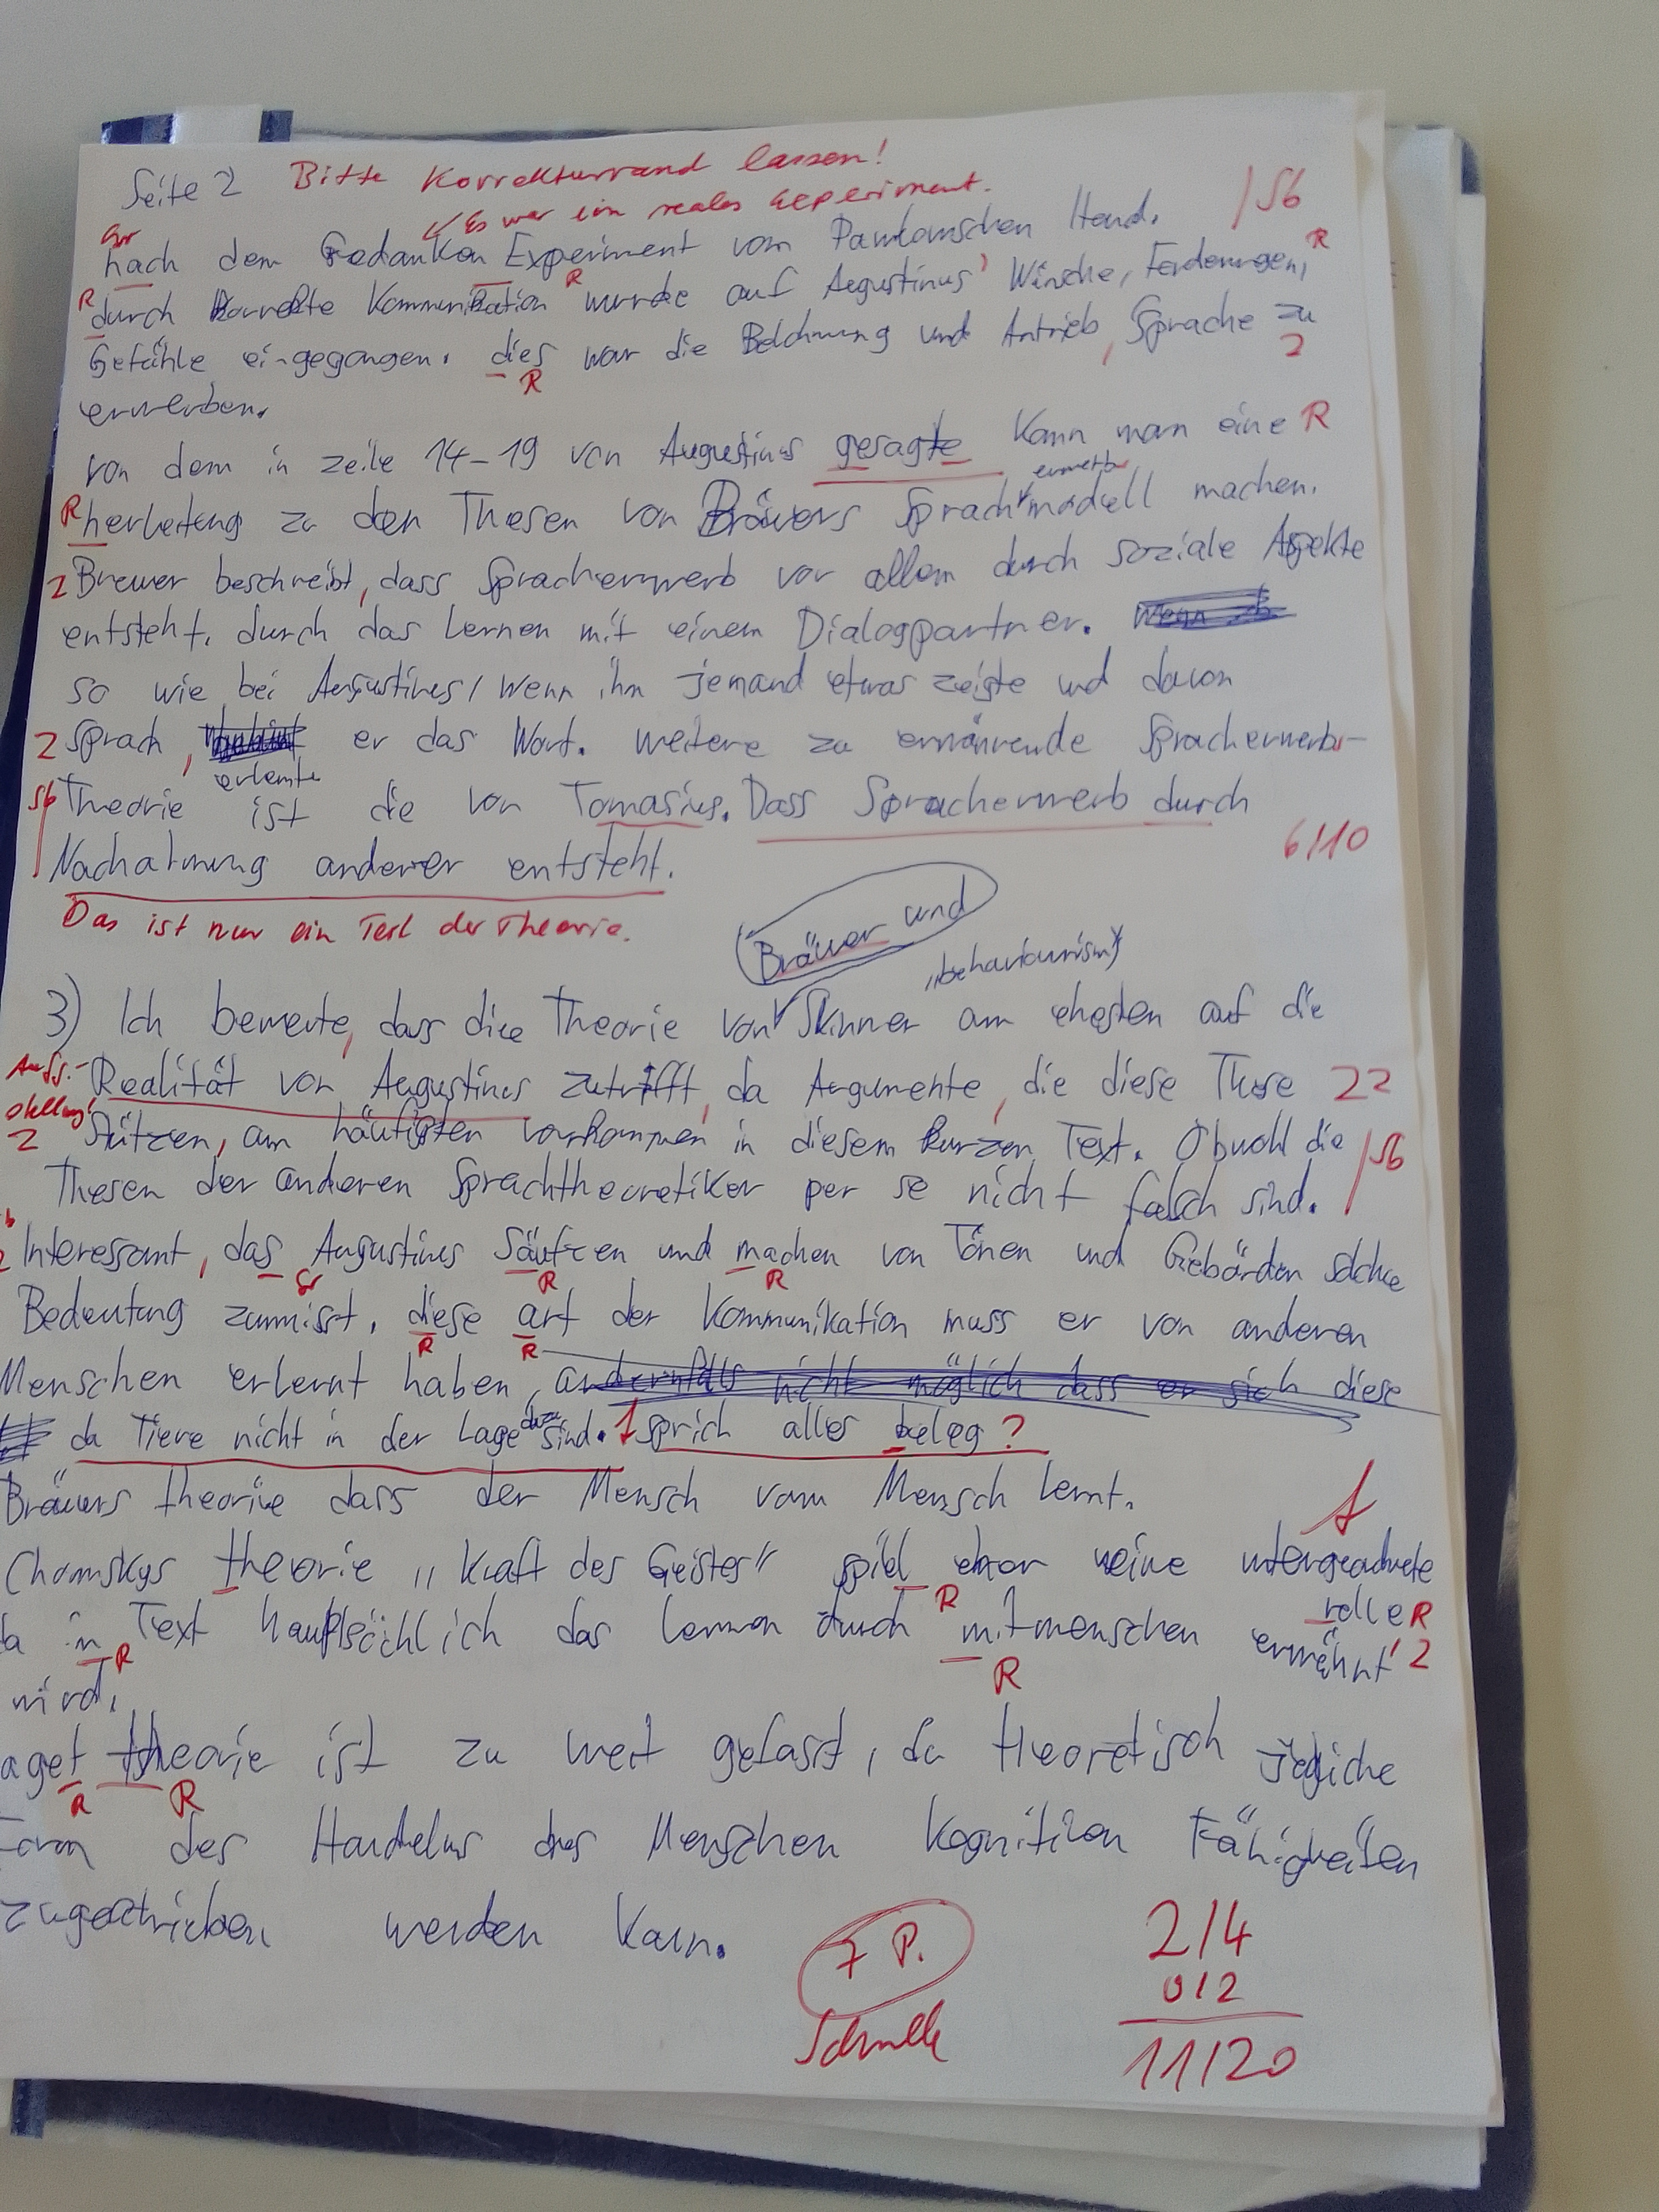 Seite 2 Bitte Korrekturrand lassen!
Es war ein reales Experiment.
Gr
/Sb
nach dem Gedanken Experiment vom Pawlowschen Hund.
R durch korrekte Kommunikation R wurde auf Augustinus' Wünsche, Forderungen, R
Gefühle eingegangen. dies war die Belohnung und Antrieb, Sprache zu
R Z
erwerben.
von dem in zeile 14-19 von Augustinus gesagte kann man eine R
erwerbs
R herleitung zu den Thesen von Bräuers Sprachmodell machen.
Z Brewer beschreibt, dass Spracherwerb vor allem durch soziale Aspekte
entsteht. durch das Lernen mit einem Dialogpartner.
so wie bei Augustinus, wenn ihm jemand etwas zeigte und davon
Z sprach, er das Wort. weitere zu erwähnende Spracherwerbs-
erlernte
Sb Theorie ist die von Tomasius. Dass Spracherwerb durch
6/10
Nachahmung anderer entsteht.
Das ist nur ein Teil der Theorie.
Bräuer und
"behaviourism"
3) Ich bewerte, dass die Theorie von Skinner am ehesten auf die
Aufg.- Realität von Augustinus zutrifft, da Argumente, die diese These ZZ
stellung!
Z stützen, am häufigsten vorkommen in diesem kurzen Text. Obwohl die /Sb
Thesen der anderen Sprachtheoretiker per se nicht falsch sind.
Interessant, das Augustinus Säufzen und machen von Tönen und Gebärden solche
Gr R R
Bedeutung zumisst. diese art der Kommunikation muss er von anderen
R R
Menschen erlernt haben, andernfalls nicht möglich dass er sich diese
da Tiere nicht in der Lage dazu sind. sprich alles beleg?
Bräuers theorie dass der Mensch vom Mensch lernt.
Chomskys theorie "Kraft des Geistes" spiel eher eine untergeordnete
R rolle R
da in Text hauptsächlich das lernen durch mitmenschen erwähnt Z
R R
wird.
aget theorie ist zu weit gefasst, da theoretisch jegliche
R R
Form des Handelns des Menschen kognitiven Fähigkeiten
zugeschrieben werden kann.
7 P.
2/4
0/2
11/20